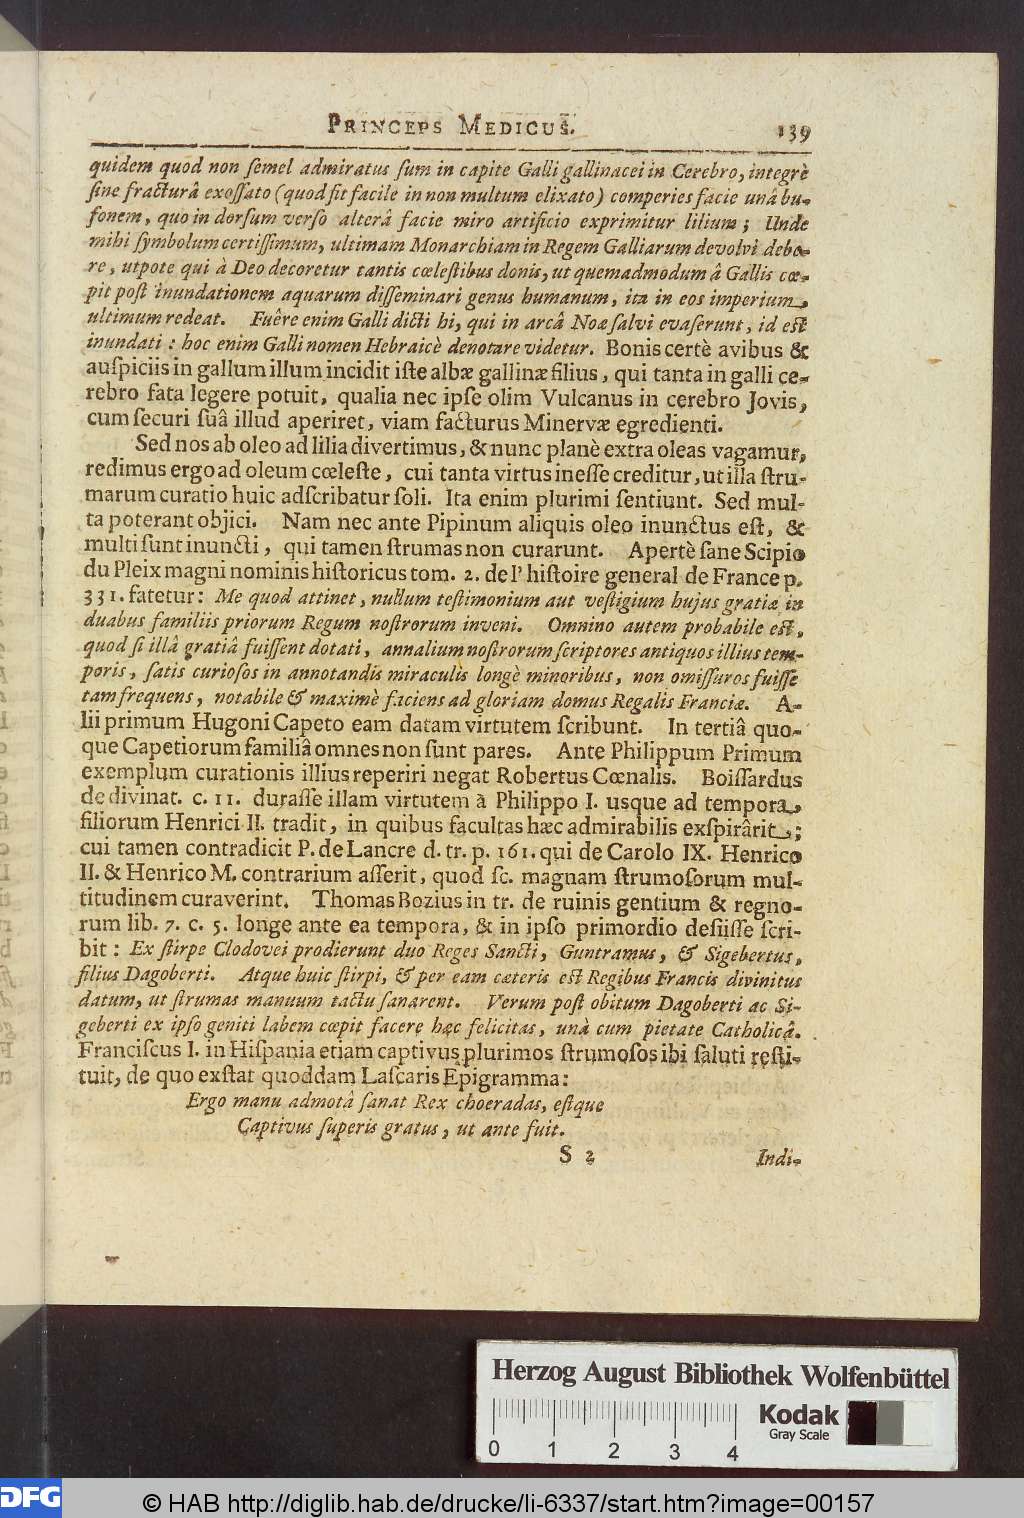 PRINCEPS MEDICUS. 139
quidem quod non ſemel admiratus ſum in capite Galli gallinacei in Cerebro, integrè
ſine fracturâ exoſſato (quod fit facile in non multum elixato) comperies facie unâ bu-
fonem, quo in dorſum verſo alterâ facie miro artificio exprimitur lilium; Unde
mihi ſymbolum certiſſimum, ultimam Monarchiam in Regem Galliarum devolvi debe-
re, utpote qui à Deo decoretur tantis cœleſtibus donis, ut quemadmodum â Gallis cœ-
pit poſt inundationem aquarum diſſeminari genus humanum, ita in eos imperium
ultimum redeat. Fuêre enim Galli dicti hi, qui in arcâ Noæ ſalvi evaſerunt, id eſt
inundati: hoc enim Galli nomen Hebraicè denotare videtur. Bonis certè avibus &
auſpiciis in gallum illum incidit iſte albæ gallinæ filius, qui tanta in galli ce-
rebro fata legere potuit, qualia nec ipſe olim Vulcanus in cerebro Jovis,
cum ſecuri ſuâ illud aperiret, viam facturus Minervæ egredienti.
Sed nos ab oleo ad lilia divertimus, & nunc planè extra oleas vagamur,
redimus ergo ad oleum cœleſte, cui tanta virtus ineſſe creditur, ut illa ſtru-
marum curatio huic adſcribatur ſoli. Ita enim plurimi ſentiunt. Sed mul-
ta poterant objici. Nam nec ante Pipinum aliquis oleo inunctus eſt, &
multi ſunt inuncti, qui tamen ſtrumas non curarunt. Apertè ſane Scipio
du Pleix magni nominis hiſtoricus tom. 2. de l' hiſtoire general de France p.
331. fatetur: Me quod attinet, nullum teſtimonium aut veſtigium hujus gratiæ in
duabus familiis priorum Regum noſtrorum inveni. Omnino autem probabile eſt,
quod ſi illâ gratiâ fuiſſent dotati, annalium noſtrorum ſcriptores antiquos illius tem-
poris, ſatis curioſos in annotandis miraculis longè minoribus, non omiſſuros fuiſſe
tam frequens, notabile & maximè faciens ad gloriam domus Regalis Franciæ. A-
lii primum Hugoni Capeto eam datam virtutem ſcribunt. In tertiâ quo-
que Capetiorum familiâ omnes non ſunt pares. Ante Philippum Primum
exemplum curationis illius reperiri negat Robertus Cœnalis. Boiſſardus
de divinat. c. 11. duraſſe illam virtutem à Philippo I. usque ad tempora
filiorum Henrici II. tradit, in quibus facultas hæc admirabilis exſpirârit;
cui tamen contradicit P. de Lancre d. tr. p. 161. qui de Carolo IX. Henrico
II. & Henrico M. contrarium aſſerit, quod ſc. magnam ſtrumoſorum mul-
titudinem curaverint. Thomas Bozius in tr. de ruinis gentium & regno-
rum lib. 7. c. 5. longe ante ea tempora, & in ipſo primordio deſiiſſe ſcri-
bit: Ex ſtirpe Clodovei prodierunt duo Reges Sancti, Guntramus, & Sigebertus,
filius Dagoberti. Atque huic ſtirpi, & per eam cæteris eſt Regibus Francis divinitus
datum, ut ſtrumas manuum tactu ſanarent. Verum poſt obitum Dagoberti ac Si-
geberti ex ipſo geniti labem cœpit facere hæc felicitas, unà cum pietate Catholicâ.
Franciſcus I. in Hiſpania etiam captivus plurimos ſtrumoſos ibi ſaluti reſti-
tuit, de quo exſtat quoddam Laſcaris Epigramma:
Ergo manu admotâ ſanat Rex choeradas, eſtque
Captivus ſuperis gratus, ut ante fuit.
S 2 Indi-
Herzog August Bibliothek Wolfenbüttel
Kodak
Gray Scale
0 1 2 3 4
DFG
© HAB http://diglib.hab.de/drucke/li-6337/start.htm?image=00157